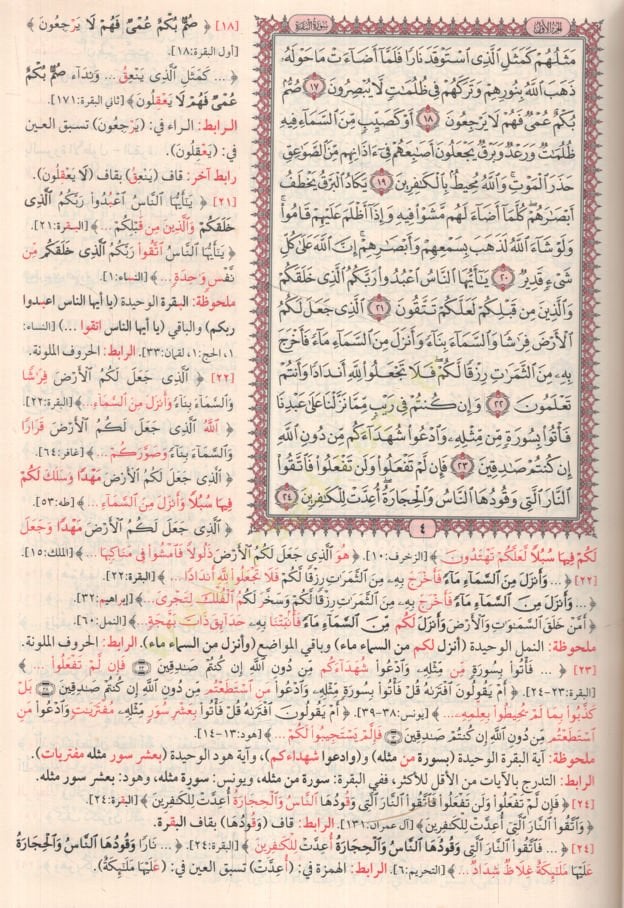 الجزء الأول
سورة البقرة
مَثَلُهُمْ كَمَثَلِ ٱلَّذِى ٱسْتَوْقَدَ نَارًا فَلَمَّآ أَضَآءَتْ مَا حَوْلَهُۥ
ذَهَبَ ٱللَّهُ بِنُورِهِمْ وَتَرَكَهُمْ فِى ظُلُمَٰتٍ لَّا يُبْصِرُونَ ١٧ صُمٌّۢ
بُكْمٌ عُمْىٌ فَهُمْ لَا يَرْجِعُونَ ١٨ أَوْ كَصَيِّبٍ مِّنَ ٱلسَّمَآءِ فِيهِ
ظُلُمَٰتٌ وَرَعْدٌ وَبَرْقٌ يَجْعَلُونَ أَصَٰبِعَهُمْ فِىٓ ءَاذَانِهِم مِّنَ ٱلصَّوَٰعِقِ
حَذَرَ ٱلْمَوْتِ وَٱللَّهُ مُحِيطٌۢ بِٱلْكَٰفِرِينَ ١٩ يَكَادُ ٱلْبَرْقُ يَخْطَفُ
أَبْصَٰرَهُمْ كُلَّمَآ أَضَآءَ لَهُم مَّشَوْا۟ فِيهِ وَإِذَآ أَظْلَمَ عَلَيْهِمْ قَامُوا۟
وَلَوْ شَآءَ ٱللَّهُ لَذَهَبَ بِسَمْعِهِمْ وَأَبْصَٰرِهِمْ إِنَّ ٱللَّهَ عَلَىٰ كُلِّ
شَىْءٍ قَدِيرٌ ٢٠ يَٰٓأَيُّهَا ٱلنَّاسُ ٱعْبُدُوا۟ رَبَّكُمُ ٱلَّذِى خَلَقَكُمْ
وَٱلَّذِينَ مِن قَبْلِكُمْ لَعَلَّكُمْ تَتَّقُونَ ٢١ ٱلَّذِى جَعَلَ لَكُمُ
ٱلْأَرْضَ فِرَٰشًا وَٱلسَّمَآءَ بِنَآءً وَأَنزَلَ مِنَ ٱلسَّمَآءِ مَآءً فَأَخْرَجَ
بِهِۦ مِنَ ٱلثَّمَرَٰتِ رِزْقًا لَّكُمْ فَلَا تَجْعَلُوا۟ لِلَّهِ أَندَادًا وَأَنتُمْ
تَعْلَمُونَ ٢٢ وَإِن كُنتُمْ فِى رَيْبٍ مِّمَّا نَزَّلْنَا عَلَىٰ عَبْدِنَا
فَأْتُوا۟ بِسُورَةٍ مِّن مِّثْلِهِۦ وَٱدْعُوا۟ شُهَدَآءَكُم مِّن دُونِ ٱللَّهِ
إِن كُنتُمْ صَٰدِقِينَ ٢٣ فَإِن لَّمْ تَفْعَلُوا۟ وَلَن تَفْعَلُوا۟ فَٱتَّقُوا۟
ٱلنَّارَ ٱلَّتِى وَقُودُهَا ٱلنَّاسُ وَٱلْحِجَارَةُ أُعِدَّتْ لِلْكَٰفِرِينَ ٢٤
٤
[١٨] ﴿ صُمٌّۢ بُكْمٌ عُمْىٌ فَهُمْ لَا يَرْجِعُونَ ﴾
[أول البقرة:١٨].
﴿ ... كَمَثَلِ ٱلَّذِى يَنْعِقُ ... وَنِدَآءً صُمٌّۢ بُكْمٌ
عُمْىٌ فَهُمْ لَا يَعْقِلُونَ ﴾ [ثاني البقرة:١٧١].
الرابط: الراء في: (يَرْجِعُونَ) تسبق العين
في: (يَعْقِلُونَ).
رابط آخر: قاف (يَنْعِقُ) بقاف (لَا يَعْقِلُونَ).
[٢١] ﴿ يَٰٓأَيُّهَا ٱلنَّاسُ ٱعْبُدُوا۟ رَبَّكُمُ ٱلَّذِى
خَلَقَكُمْ وَٱلَّذِينَ مِن قَبْلِكُمْ ... ﴾ [البقرة:٢١].
﴿ يَٰٓأَيُّهَا ٱلنَّاسُ ٱتَّقُوا۟ رَبَّكُمُ ٱلَّذِى خَلَقَكُم مِّن
نَّفْسٍ وَٰحِدَةٍ ... ﴾ [النساء:١].
ملحوظة: البقرة الوحيدة (يا أيها الناس اعبدوا
ربكم) والباقي (يا أيها الناس اتقوا ...) [النساء:
١، الحج:١، لقمان:٣٣]. الرابط: الحروف الملونة.
[٢٢] ﴿ ٱلَّذِى جَعَلَ لَكُمُ ٱلْأَرْضَ فِرَٰشًا
وَٱلسَّمَآءَ بِنَآءً وَأَنزَلَ مِنَ ٱلسَّمَآءِ ... ﴾ [البقرة:٢٢].
﴿ ٱللَّهُ ٱلَّذِى جَعَلَ لَكُمُ ٱلْأَرْضَ قَرَارًا
وَٱلسَّمَآءَ بِنَآءً وَصَوَّرَكُمْ ... ﴾ [غافر:٦٤].
﴿ ٱلَّذِى جَعَلَ لَكُمُ ٱلْأَرْضَ مَهْدًا وَسَلَكَ لَكُمْ
فِيهَا سُبُلًا وَأَنزَلَ مِنَ ٱلسَّمَآءِ ... ﴾ [طه:٥٣].
﴿ ٱلَّذِى جَعَلَ لَكُمُ ٱلْأَرْضَ مَهْدًا وَجَعَلَ
لَكُمْ فِيهَا سُبُلًا لَّعَلَّكُمْ تَهْتَدُونَ ﴾ [الزخرف:١٠]. ﴿ هُوَ ٱلَّذِى جَعَلَ لَكُمُ ٱلْأَرْضَ ذَلُولًا فَٱمْشُوا۟ فِى مَنَاكِبِهَا ... ﴾ [الملك:١٥].
[٢٢] ﴿ ... وَأَنزَلَ مِنَ ٱلسَّمَآءِ مَآءً فَأَخْرَجَ بِهِۦ مِنَ ٱلثَّمَرَٰتِ رِزْقًا لَّكُمْ فَلَا تَجْعَلُوا۟ لِلَّهِ أَندَادًا ... ﴾ [البقرة:٢٢].
﴿ ... وَأَنزَلَ مِنَ ٱلسَّمَآءِ مَآءً فَأَخْرَجَ بِهِۦ مِنَ ٱلثَّمَرَٰتِ رِزْقًا لَّكُمْ وَسَخَّرَ لَكُمُ ٱلْفُلْكَ لِتَجْرِىَ ... ﴾ [إبراهيم:٣٢].
﴿ أَمَّنْ خَلَقَ ٱلسَّمَٰوَٰتِ وَٱلْأَرْضَ وَأَنزَلَ لَكُم مِّنَ ٱلسَّمَآءِ مَآءً فَأَنۢبَتْنَا بِهِۦ حَدَآئِقَ ذَاتَ بَهْجَةٍ ... ﴾ [النمل:٦٠].
ملحوظة: النمل الوحيدة (أنزل لكم من السماء ماء) وباقي المواضع (وأنزل من السماء ماء). الرابط: الحروف الملونة.
[٢٣] ﴿ ... فَأْتُوا۟ بِسُورَةٍ مِّن مِّثْلِهِۦ وَٱدْعُوا۟ شُهَدَآءَكُم مِّن دُونِ ٱللَّهِ إِن كُنتُمْ صَٰدِقِينَ ٢٣ فَإِن لَّمْ تَفْعَلُوا۟ ... ﴾
[البقرة:٢٣-٢٤]. ﴿ أَمْ يَقُولُونَ ٱفْتَرَىٰهُ قُلْ فَأْتُوا۟ بِسُورَةٍ مِّثْلِهِۦ وَٱدْعُوا۟ مَنِ ٱسْتَطَعْتُم مِّن دُونِ ٱللَّهِ إِن كُنتُمْ صَٰدِقِينَ ٣٨ بَلْ
كَذَّبُوا۟ بِمَا لَمْ يُحِيطُوا۟ بِعِلْمِهِۦ ... ﴾ [يونس:٣٨-٣٩]. ﴿ أَمْ يَقُولُونَ ٱفْتَرَىٰهُ قُلْ فَأْتُوا۟ بِعَشْرِ سُوَرٍ مِّثْلِهِۦ مُفْتَرَيَٰتٍ وَٱدْعُوا۟ مَنِ
ٱسْتَطَعْتُم مِّن دُونِ ٱللَّهِ إِن كُنتُمْ صَٰدِقِينَ ١٣ فَإِلَّمْ يَسْتَجِيبُوا۟ لَكُمْ ... ﴾ [هود:١٣-١٤].
ملحوظة: آية البقرة الوحيدة (بسورة من مثله) و(وادعوا شهداءكم)، وآية هود الوحيدة (بعشر سور مثله مفتريات).
الرابط: التدرج بالآيات من الأقل للأكثر، ففي البقرة: سورة من مثله، ويونس: سورة مثله، وهود: بعشر سور مثله.
[٢٤] ﴿ فَإِن لَّمْ تَفْعَلُوا۟ وَلَن تَفْعَلُوا۟ فَٱتَّقُوا۟ ٱلنَّارَ ٱلَّتِى وَقُودُهَا ٱلنَّاسُ وَٱلْحِجَارَةُ أُعِدَّتْ لِلْكَٰفِرِينَ ﴾ [البقرة:٢٤].
﴿ وَٱتَّقُوا۟ ٱلنَّارَ ٱلَّتِىٓ أُعِدَّتْ لِلْكَٰفِرِينَ ﴾ [آل عمران:١٣١]. الرابط: قاف (وَقُودُهَا) بقاف البقرة.
[٢٤] ﴿ ... فَٱتَّقُوا۟ ٱلنَّارَ ٱلَّتِى وَقُودُهَا ٱلنَّاسُ وَٱلْحِجَارَةُ أُعِدَّتْ لِلْكَٰفِرِينَ ﴾ [البقرة:٢٤]. ﴿ ... نَارًا وَقُودُهَا ٱلنَّاسُ وَٱلْحِجَارَةُ
عَلَيْهَا مَلَٰٓئِكَةٌ غِلَاظٌ شِدَادٌ ... ﴾ [التحريم:٦]. الرابط: الهمزة في: (أُعِدَّتْ) تسبق العين في: (عَلَيْهَا مَلَٰٓئِكَةٌ).